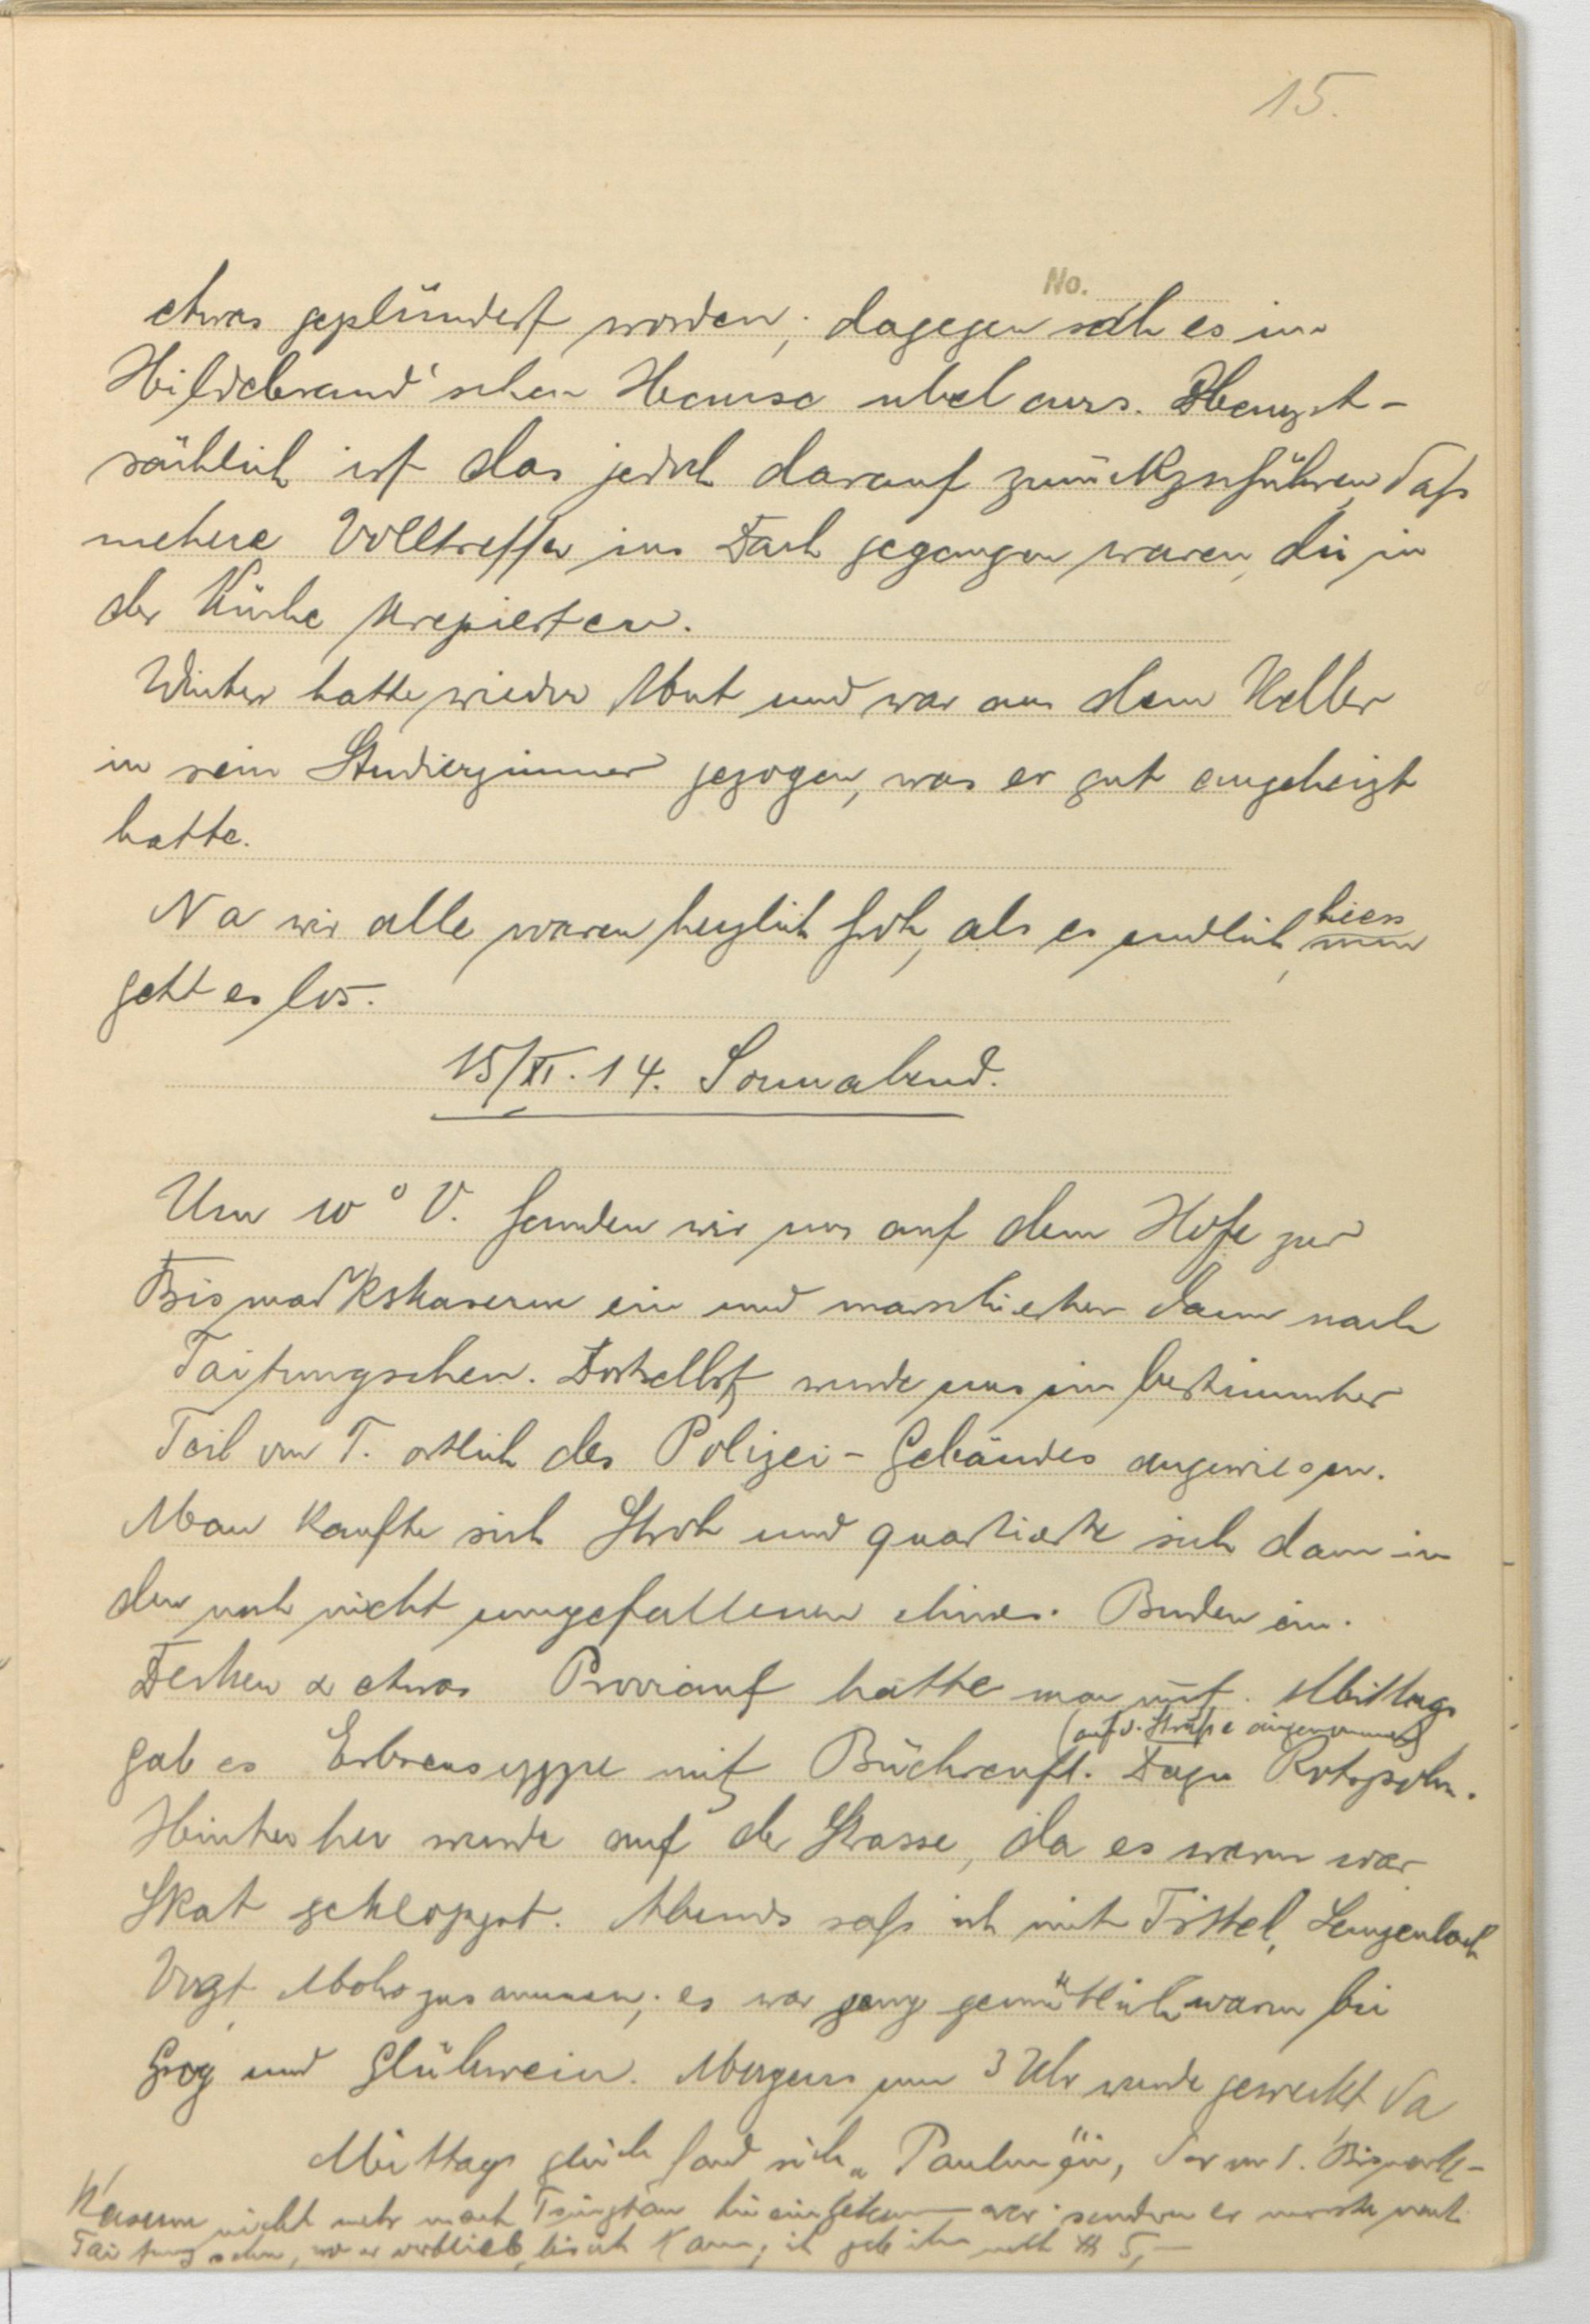 15.
No.
etwas geplündert worden; dagegen sah es im
Hildebrand'schen Hause übel aus. Haupt-
sächlich ist das jedoch darauf zurückzuführen, daß
mehere Volltreffer ins Dach gegangen waren, die in
der Küche krepierten.
Winter hatte wieder Mut und war aus dem Keller
in sein Studierzimmer gezogen, was er gut angeheizt
hatte.
Na wir alle waren herzlich froh, als es endlich hiess nun
geht es los.
15/XI. 14. Sonnabend.
Um 10° V. fanden wir uns auf dem Hofe zur
Bismarkskaserne ein und marschierten dann nach
Taitungschen. Dortselbst wurde uns ein bestimmter
Teil von T. östlich des Polizei-Gebäudes angewiesen.
Man kaufte sich Stroh und quartierte sich dann in
den noch nicht umgefallenen chines. Buden ein.
Decken & etwas Proviant hatte man mit. Mittags
(auf d. Straße eingenommen)
gab es Erbsensuppe mit Büchsenfl. Dazu Rotspohn.
Hinterher wurde auf der Strasse, da es warm war
Skat gekloppt. Abends saß ich mit Tittel, Lengenbach
Vogt, Mohr zusammen; es war ganz gemütlich warm bei
Grog und Glühwein. Morgens um 3 Uhr wurde geweckt da
Mittags gleich fand sich „ ein, der von d. Bismark-
Kaserne nicht mehr nach Tsingtau war sondern er musste nach
Taitungschen, wo er verblieb, bis ich kam; ich gab ihm 5,—